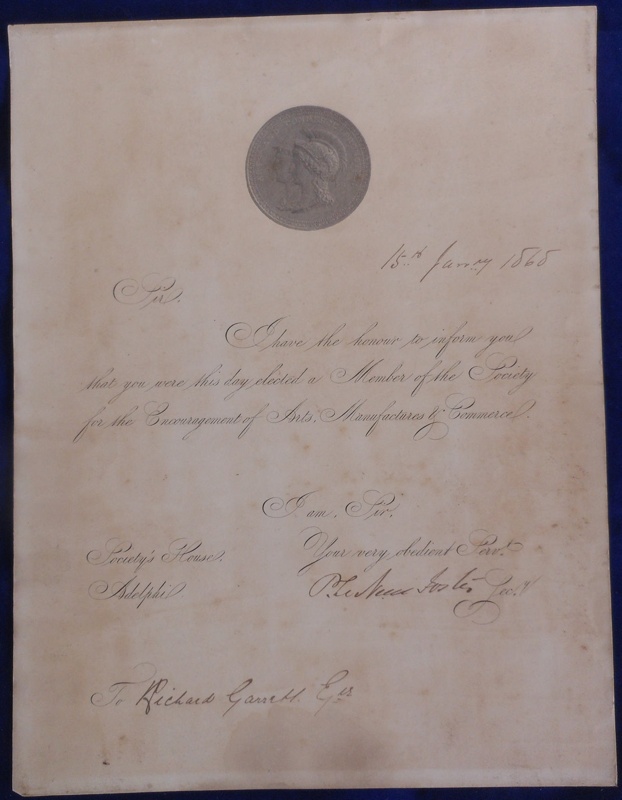 15th Janry 1868
Sir,
I have the honour to inform you
that you were this day elected a Member of the Society
for the Encouragement of Arts, Manufactures & Commerce.
I am, Sir,
Your very obedient Servt.
Society's House,
Adelphi.
P. Le Neve Foster Secy.
To Richard Garrett Esq